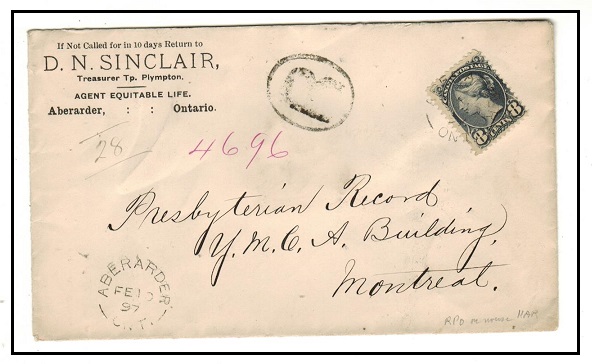 If Not Called for in 10 days Return to
D. N. SINCLAIR,
Treasurer Tp. Plympton.
AGENT EQUITABLE LIFE.
Aberarder, : : Ontario.
R
28
4696
8
8
ONT
Presbyterian Record
Y. M. C. A. Building,
Montreal.
ABERARDER
FE
97
ONT.
RPO